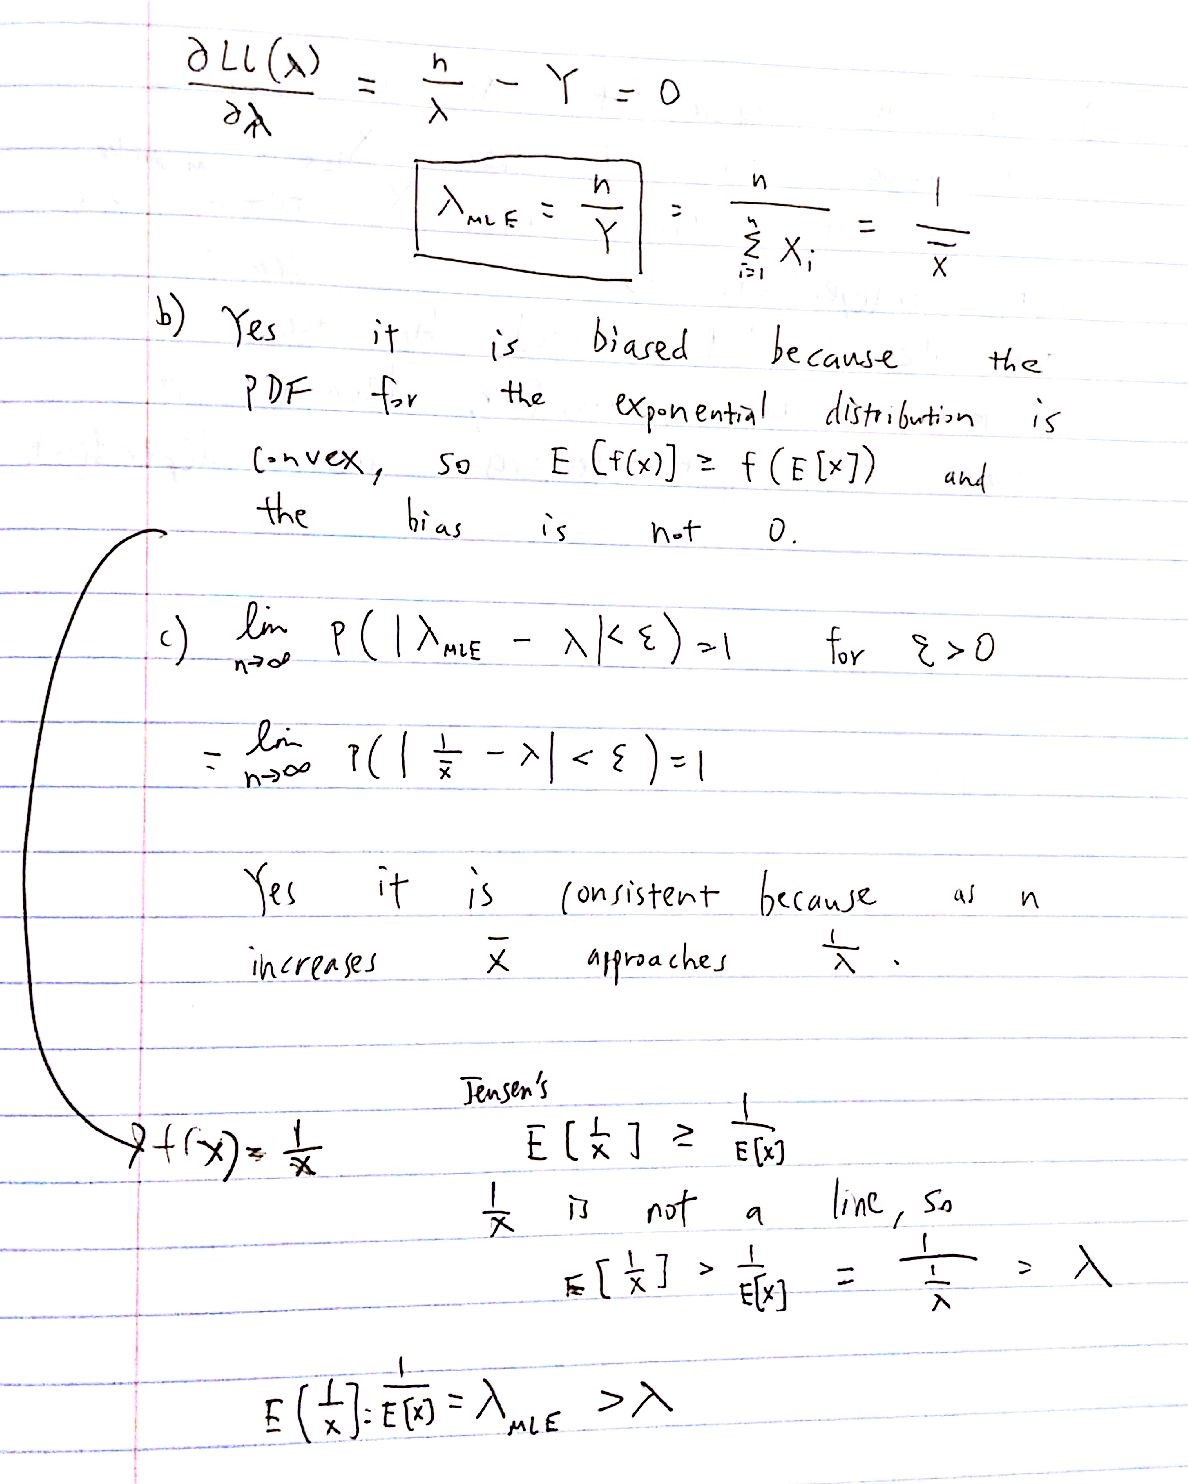 ∂LL(λ)/∂λ = n/λ - Y = 0
λ_MLE = n/Y = n/(Σ_{i=1}^{n} X_i) = 1/x̄
b) Yes it is biased because the
PDF for the exponential distribution is
convex, so E[f(x)] ≥ f(E[x]) and
the bias is not 0.
c) lim_{n→∞} P(|λ_MLE - λ| < ε) = 1 for ε > 0
= lim_{n→∞} P(|1/x̄ - λ| < ε) = 1
Yes it is consistent because as n
increases x̄ approaches 1/λ.
Jensen's
f(x) = 1/x E[1/x] ≥ 1/E[x]
1/x is not a line, so
E[1/x] > 1/E[x] = 1/(1/λ) = λ
E[1/x] = 1/E[x] = λ_MLE > λ